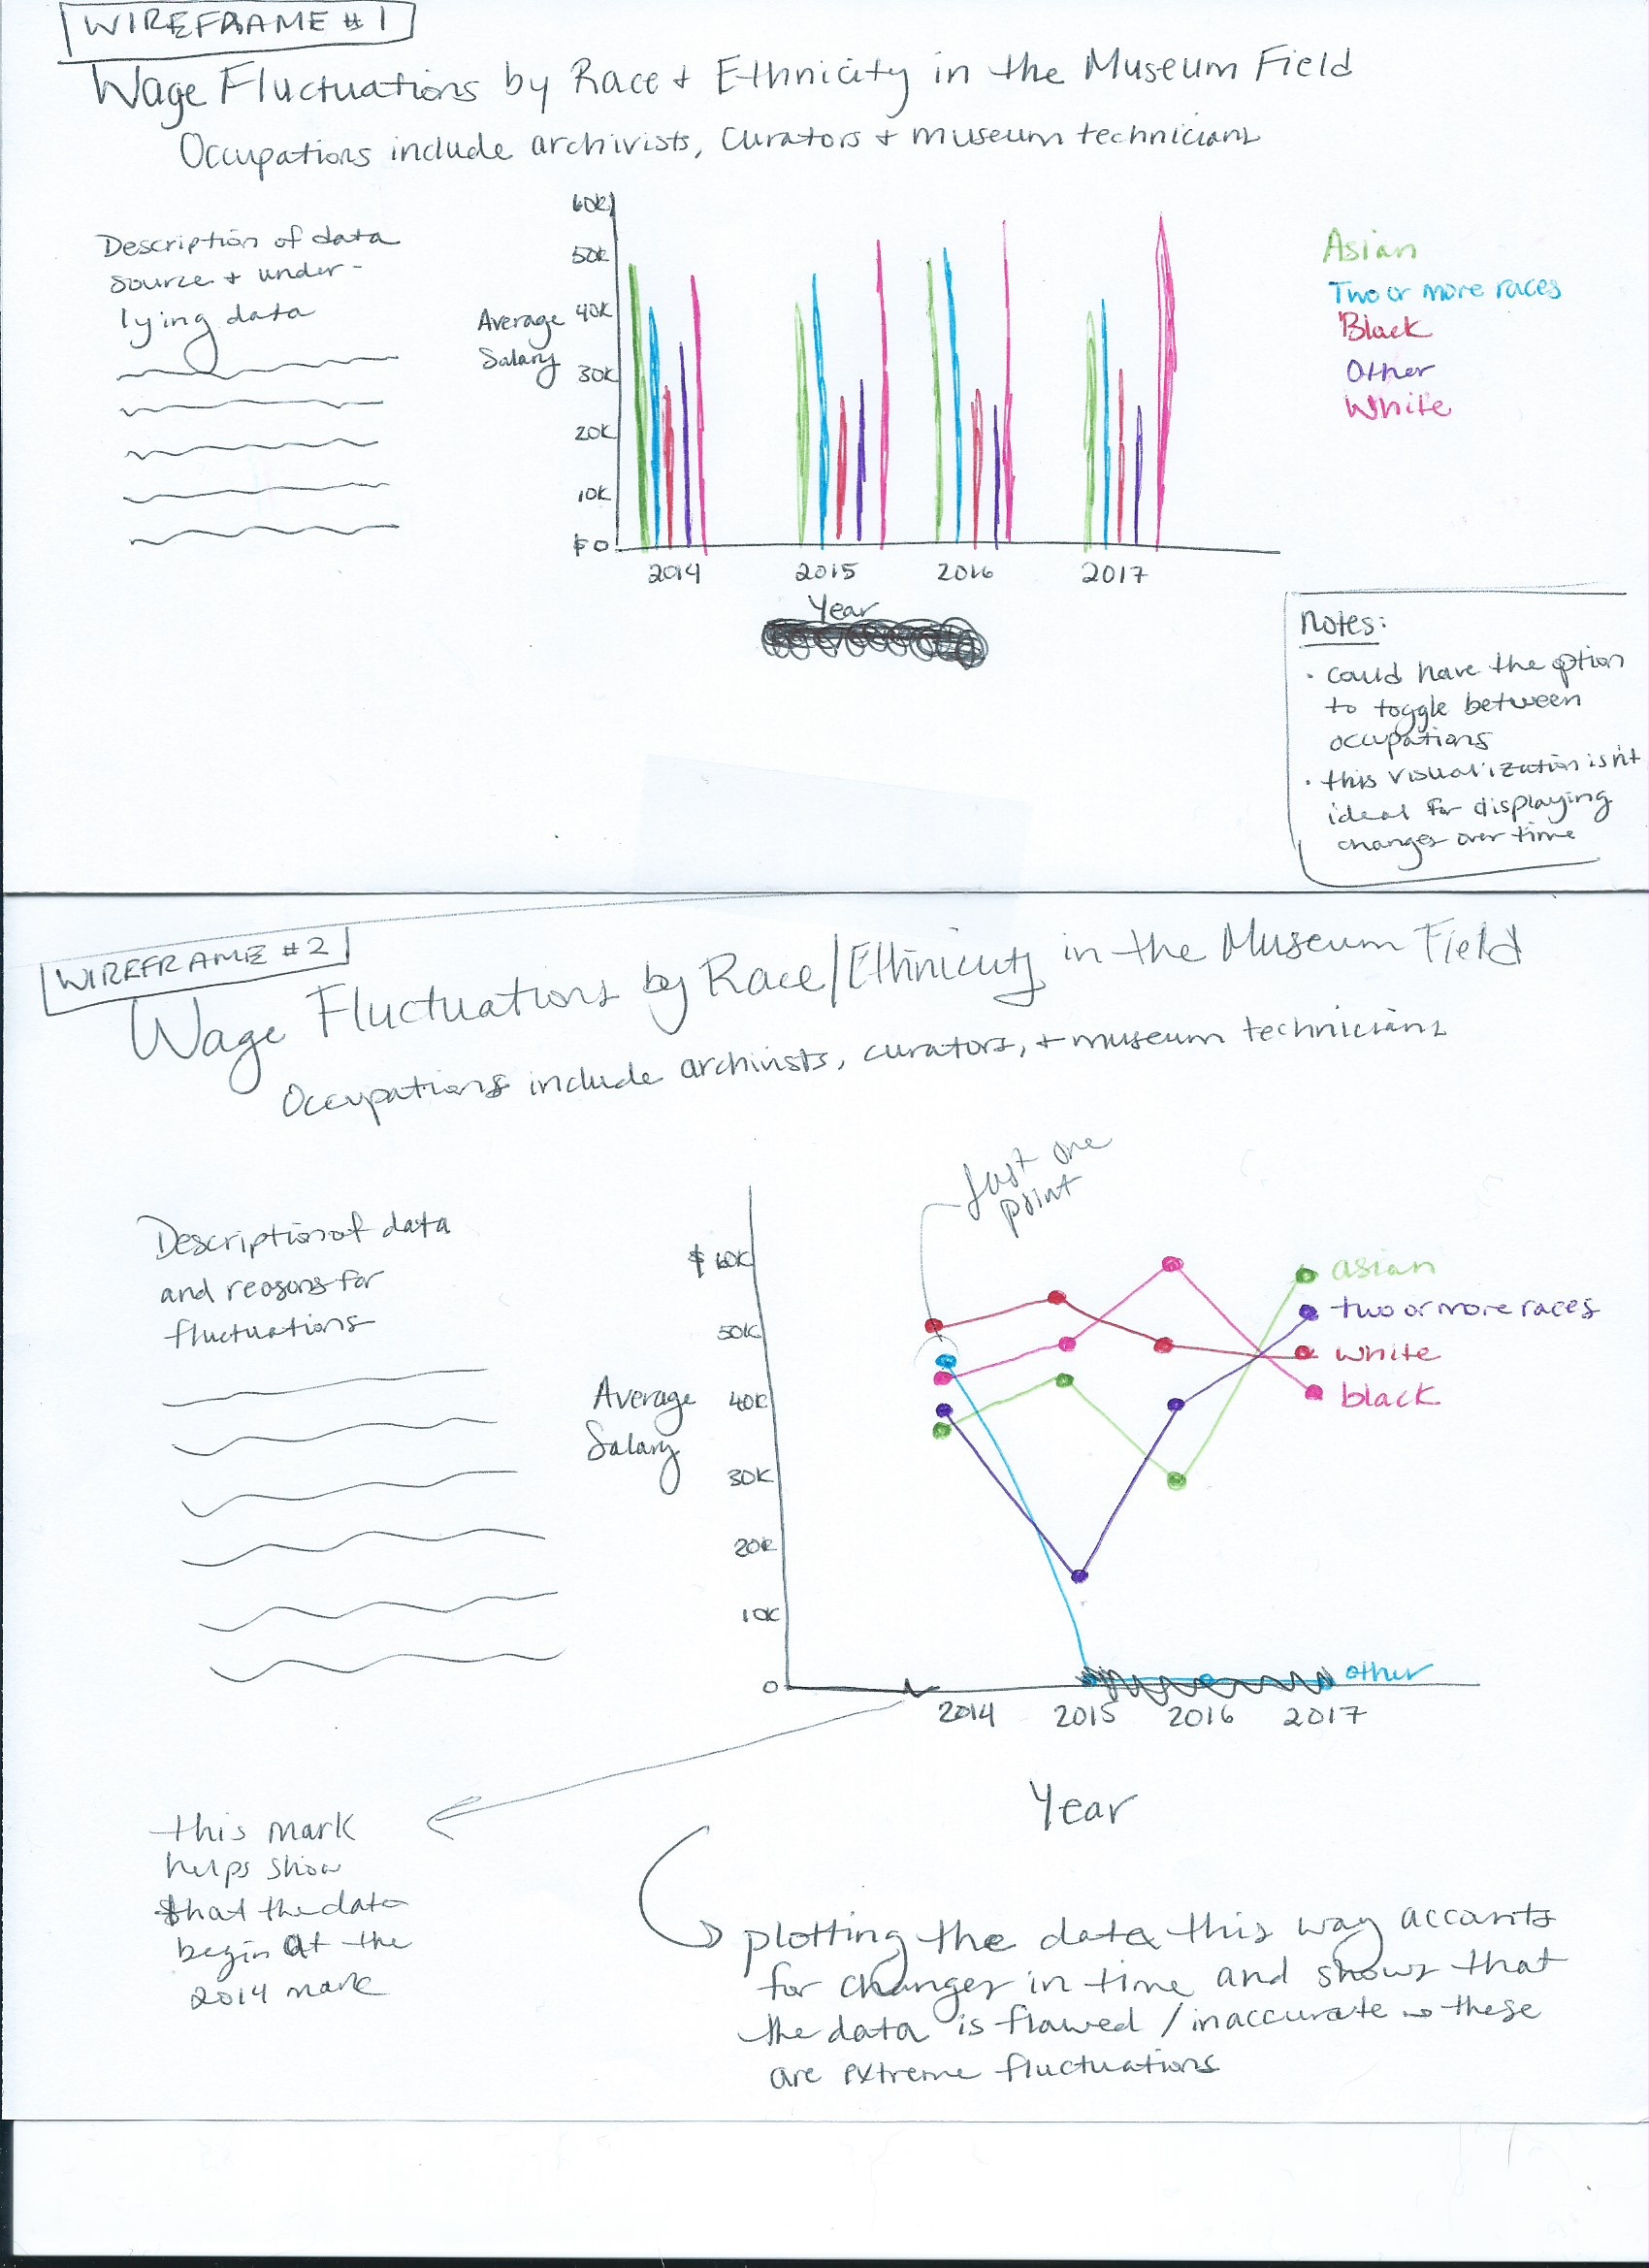 WIREFRAME #1
Wage Fluctuations by Race + Ethnicity in the Museum Field
Occupations include archivists, curators + museum technicians
Description of data
source + under-
lying data
Average
Salary
60K
50K
40K
30K
20K
10K
$0
2014 2015 2016 2017
Year
Asian
Two or more races
Black
Other
White
Notes:
· could have the option
to toggle between
occupations
· this visualization isn't
ideal for displaying
changes over time
WIREFRAME #2
Wage Fluctuations by Race/Ethnicity in the Museum Field
Occupations include archivists, curators, + museum technicians
Description of data
and reasons for
fluctuations
Just one
point
Average
Salary
$60K
50K
40K
30K
20K
10K
0
asian
two or more races
white
black
other
2014 2015 2016 2017
Year
this mark
helps show
that the data
begin at the
2014 mark
plotting the data this way accounts
for changes in time and shows that
the data is flawed / inaccurate → these
are extreme fluctuations